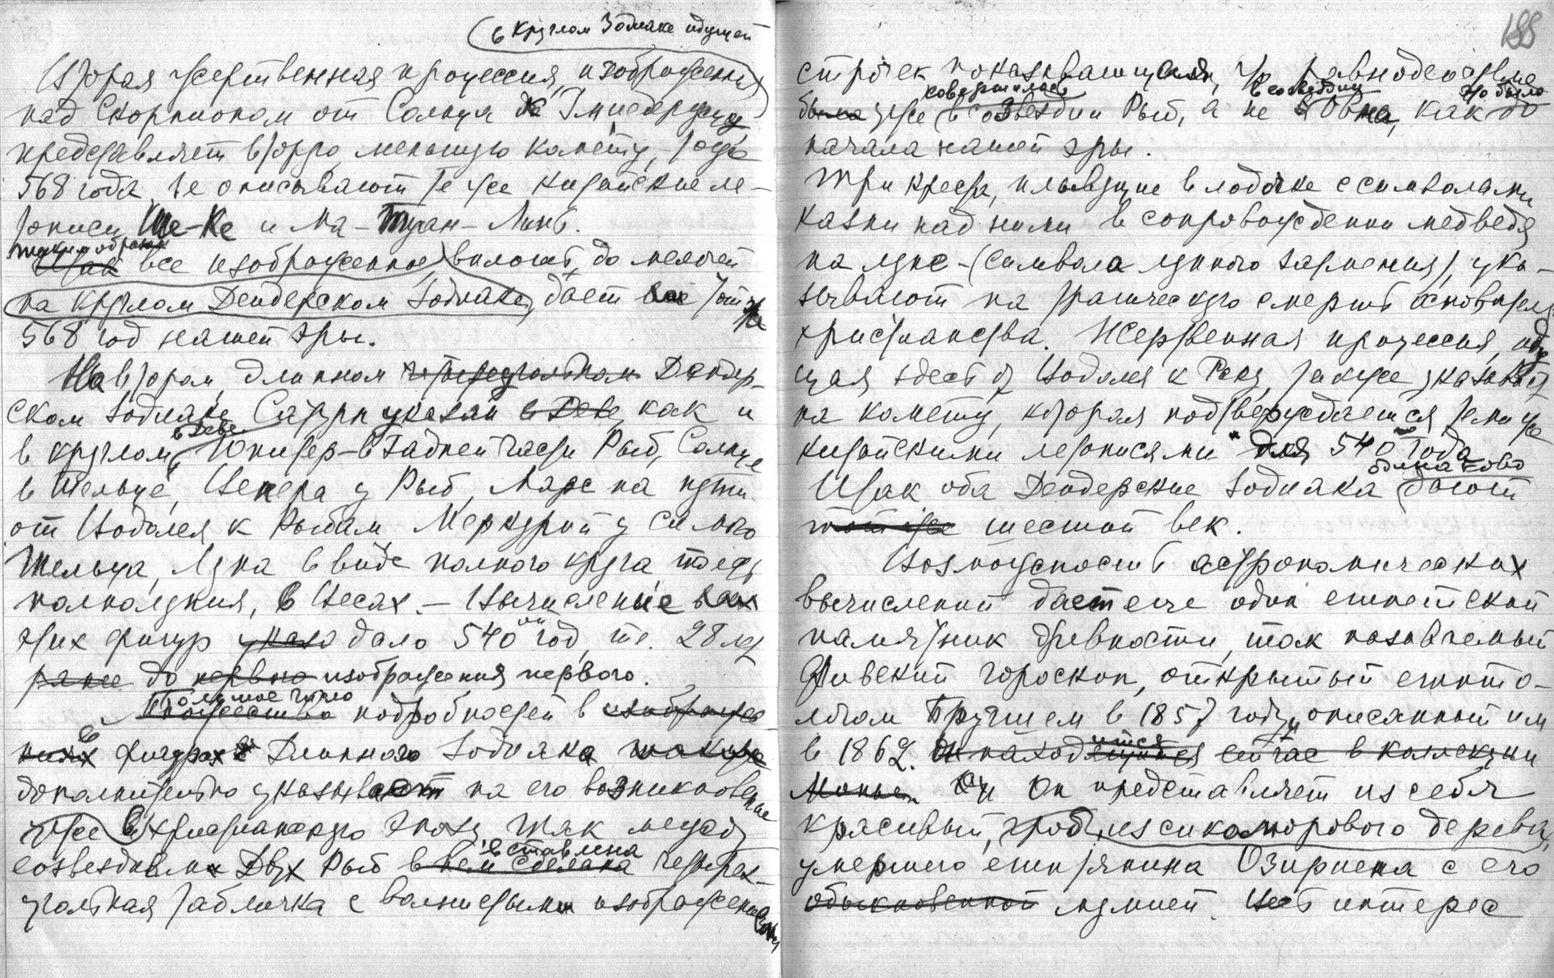 в круглом Зодиаке идущей
Вторая жертвенная процессия, изображенная
над Скорпионом от Солнца к Змиедержцу
представляет вторую, меньшую комету, тоже
568 года. Ее описывают те же китайские ле-
тописи Ше-Ке и Ма-Туан-Линь.
Таким образом
Итак все изображенное вплоть до мелочей
на круглом Дендерском Зодиаке, дает тот же
568 год нашей эры.
На втором, длинном четыреугольном Дендер-
ском Зодиаке Сатурн указан в Деве как и
в Деве
в круглом, Юпитер – в задней части Рыб, Солнце
в Тельце, Венера у Рыб, Марс на пути
от Водолея к Рыбам, Меркурий у самого
Тельца, Луна в виде полного круга т.-е.
полнолуния, в Весах. – Вычисление всех
этих фигур дало 540 ый год, т.е. 28 лет
ранее до первого изображения первого.
Большое число
Множество подробностей в изображе-
ниях фигурах Длинного Зодиака также
дополнительно указывает на его возникновение
уже в христианскую эпоху. Так между
вставлена
созвездиями Двух Рыб в нем сделана четырех-
угольная табличка с волнистыми изображениями
188
строчек показывающая, что равноденствие
совершилось в созвездии это было
было уже в созвездии Рыб, а не Овна, как до
начала нашей эры.
Три креста, плывущие в лодочке с символами
казни над ними в сопровождении медведя
на луне – (символа лунного затмения), ука-
зывают на трагическую смерть основателя
христианства. Жертвенная процессия, иду-
щая здесь от Водолея к Раку, также указывает
на комету, которая подтверждается теми же
китайскими летописями для 540 года
одинаково
Итак оба Дендерские Зодиака дают
тот же шестой век.
Возможность астрономических
вычислений дает еще один египетский
памятник древности, так называемый
Фивский гороскоп, открытый египто-
логом Бругшем в 1857 году и описанный им
в 1862. и находящийся сейчас в коллекции
Он представляет из себя
красивый, гроб, из сикоморового дерева,
умершего египтянина Озириса с его
обыкновенной мумией. Весь интерес